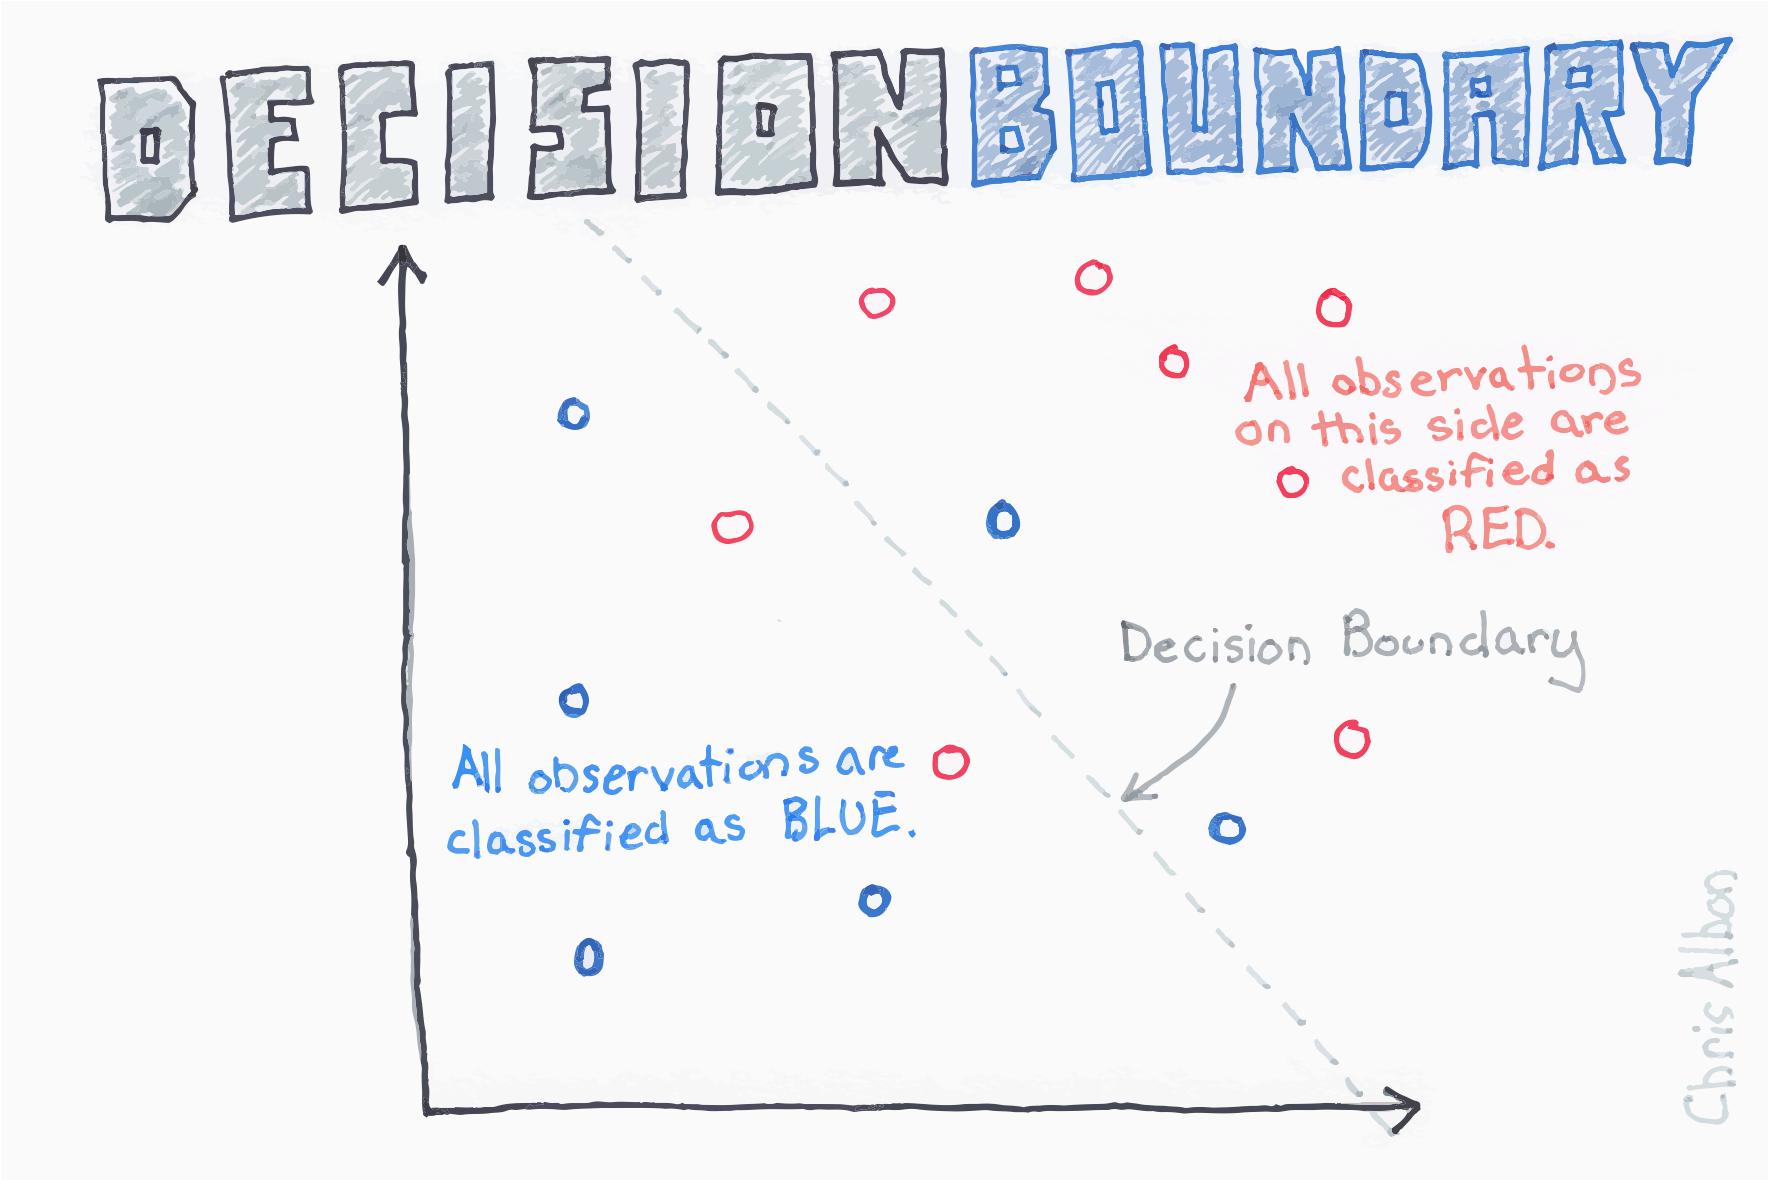 DECISION BOUNDARY
All observations
on this side are
classified as
RED.
Decision Boundary
All observations are
classified as BLUE.
Chris Albon